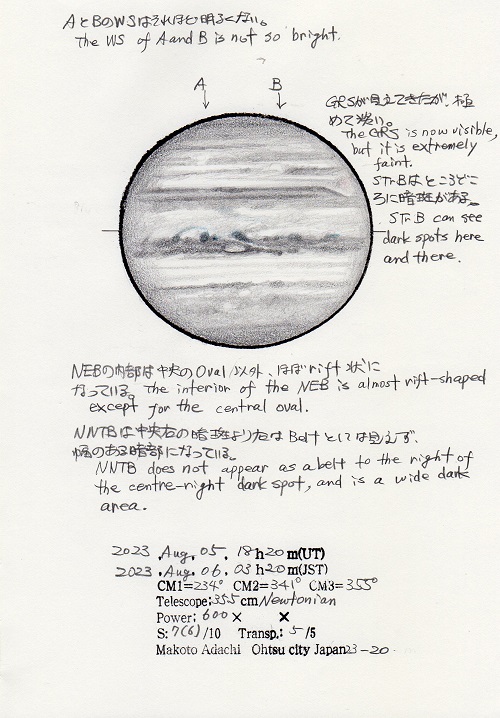 AとBのWSはそれほど明るくない。
The WS of A and B is not so bright.
A
B
GRSが見えてきたが、極
めて淡い。
The GRS is now visible,
but it is extremely
faint.
STrBはところどこ
ろに暗斑がある。
STrB can see
dark spots here
and there.
NEBの内部は中央のOval以外、ほぼrift状に
なっている。The interior of the NEB is almost rift-shaped
except for the central oval.
NNTBは中央右の暗斑より右はBeltとしては見えず、
幅のある暗部になっている。
NNTB does not appear as a belt to the right of
the centre-right dark spot, and is a wide dark
area.
2023.Aug.05.18h20m(UT)
2023.Aug.06.03h20m(JST)
CM1=234° CM2=341° CM3=355°
Telescope;355cm Newtonian
Power; 600× ×
S: 7(6)/10 Transp.: 5/5
Makoto Adachi Ohtsu city Japan 23-20.